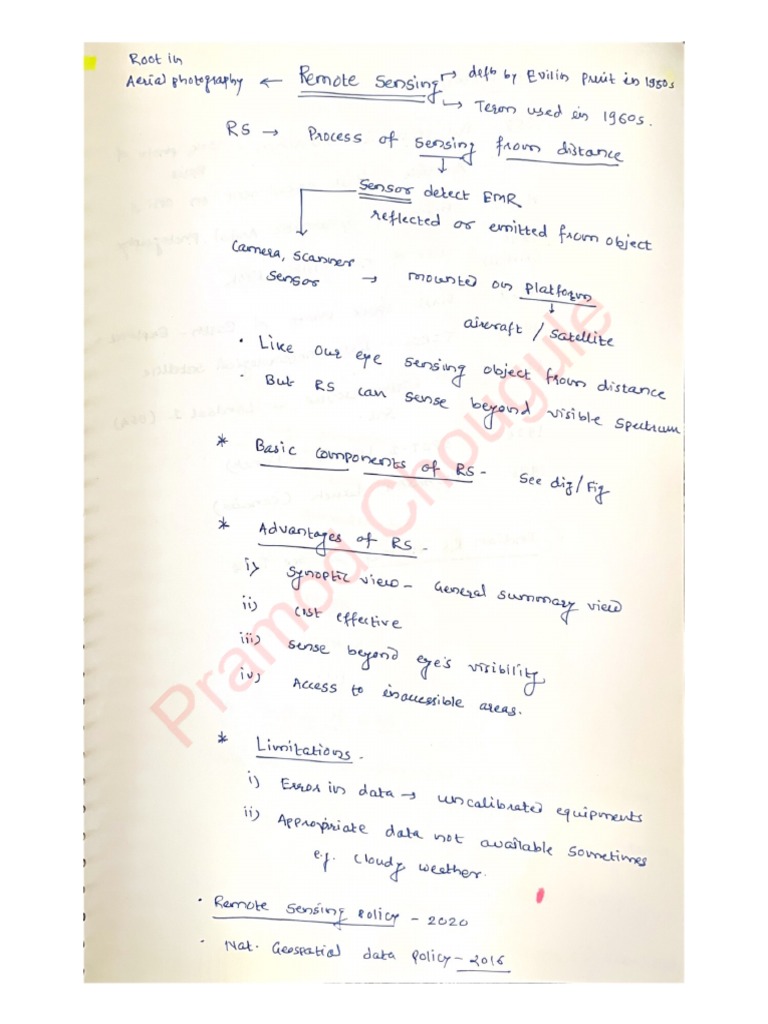 Root in
Aerial photography ← Remote Sensing → defn by Evilin Pruit in 1950s
→ Term used in 1960s.
RS → Process of sensing from distance
↓
Sensor detect EMR
reflected or emitted from object
Camera, Scanner
Sensor → mounted on platform
↓
aircraft / Satellite
• Like our eye sensing object from distance
• But RS can sense beyond visible spectrum
* Basic components of RS - See dig/Fig
* Advantages of RS -
i) Synoptic view - General summary view
ii) Cost effective
iii) Sense beyond eye's visibility
iv) Access to inaccessible areas.
* Limitations -
i) Error in data → uncalibrated equipments
ii) Appropriate data not available sometimes
e.g. Cloudy weather.
• Remote Sensing policy - 2020
• Nat. Geospatial data policy - 2016
Pramod Chougule